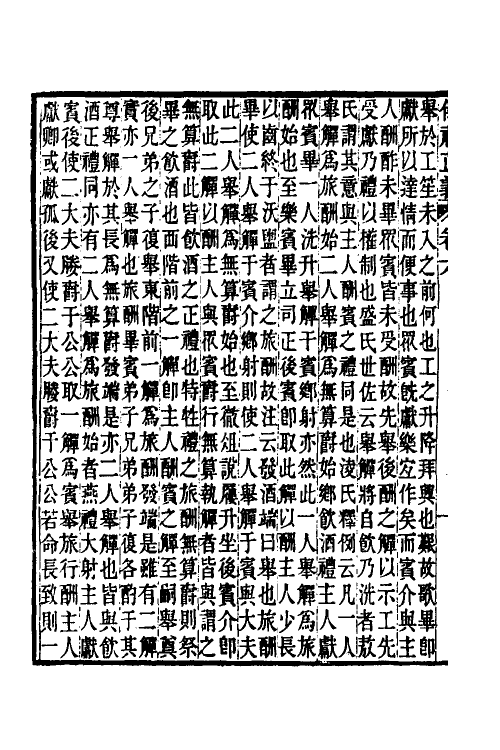 舉於工笙未入之前何也工之升降拜興也艱故歌畢卽
獻所以達情而便事也眾賓旣獻樂宐作矣而賓介與主
人酬酢未畢眾賓皆未受酬故先舉後酬之觶以示工先
受獻乃禮以權制也盛氏世佐云舉觶將自飲乃洗者敖
氏謂其意與主人酬賓之禮同是也淩氏釋例云凡一人
舉觶爲旅酬始二人舉觶爲無算爵始鄉飲酒禮主人獻
眾賓畢一人洗升舉觶于賓鄉射亦然此一人舉觶爲旅
酬始也至樂賓畢立司正後賓卽取此觶以酬主人少長
以齒終于沃盥者謂之旅酬故注云發酒端曰舉也旅酬
畢使二人舉觶于賓介鄉射則使二人舉觶于賓與大夫
此二人舉觶爲無算爵始也至徹俎說屨升坐後賓介卽
取此二觶以酬主人與眾賓爵行無算執觶者皆與謂之
無算爵此皆飲酒之正禮也特牲禮之旅酬無算爵則祭
畢之飲酒也西階前之一觶卽主人酬賓之觶至嗣舉奠
後兄弟之子復舉東階前一觶爲旅酬發端是雖有二觶
實亦一人舉觶也旅酬畢賓弟子兄弟弟子復各酌于其
尊舉觶於其長爲無算爵發端是亦二人舉觶也皆與飲
酒正禮同亦有二人舉觶爲旅酬始者燕禮大射主人獻
賓後使二大夫媵爵于公公取一觶爲賓舉旅行酬主人
獻卿或獻孤後又使二大夫媵爵于公公若命長致則一